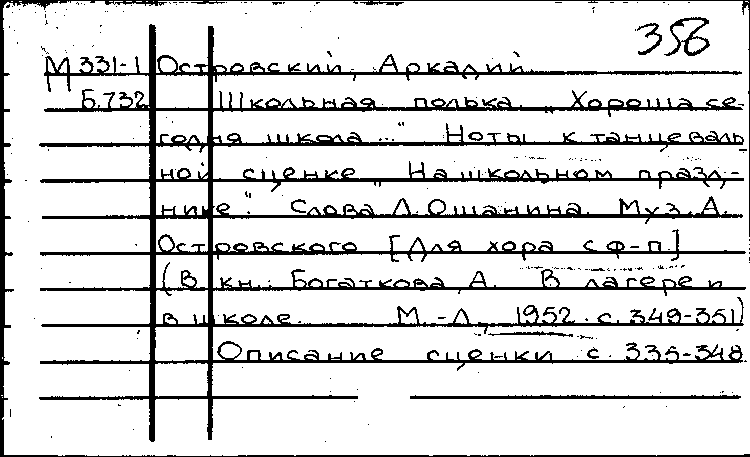 356
М 331-1 Островский, Аркадий.
Б.732 Школьная полька. „Хороша се-
годня школа..." Ноты к танцеваль
ной сценке „На школьном празд-
нике". Слова Л. Ошанина. Муз. А.
Островского [Для хора с ф-п.]
(В кн.: Богаткова, А. В лагере и
в школе. М.-Л., 1952. с. 349-351)
Описание сценки с. 335-348